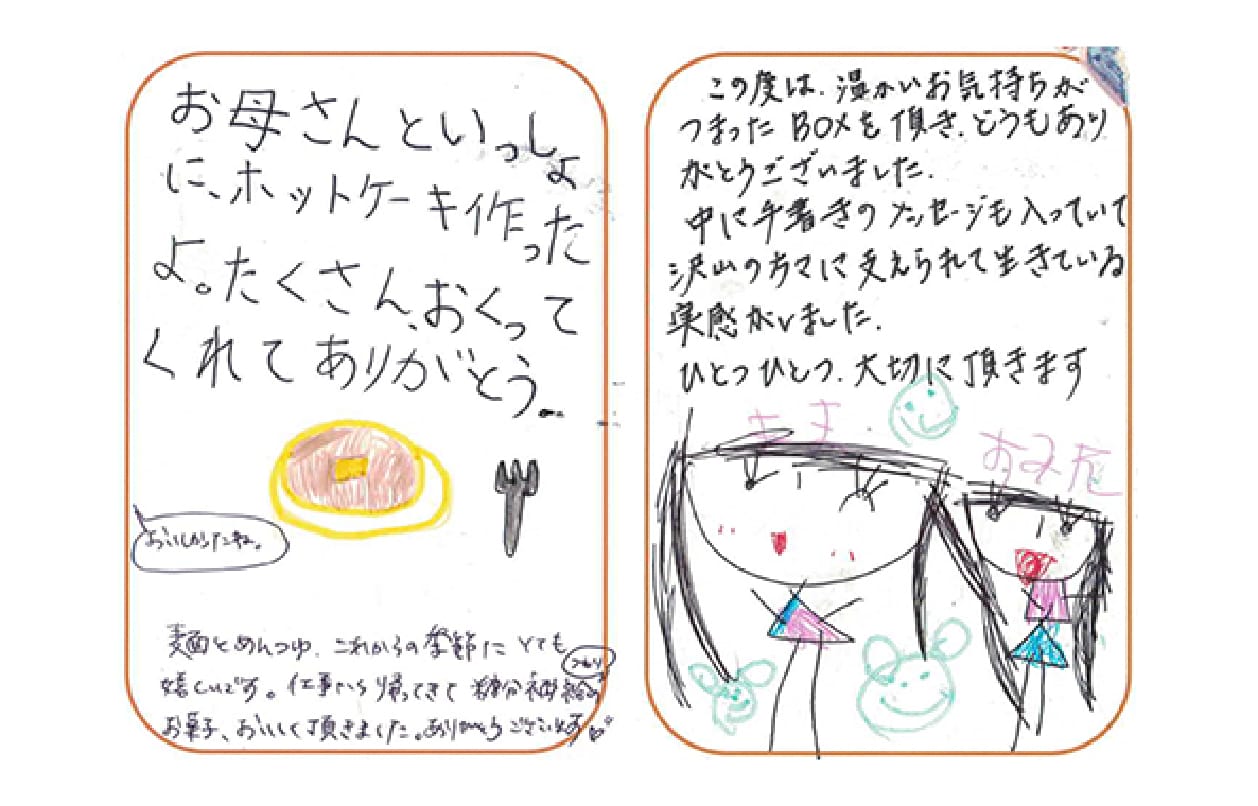 お母さんといっしょ
に、ホットケーキ作った
よ。たくさん、おくって
くれてありがとう。
おいしかったね。
麺とめんつゆ、これからの季節にとても
嬉しいです。仕事から帰ってきて糖分補給の
お菓子、おいしく頂きました。ありがとうございます♡
この度は、温かいお気持ちが
つまったBOXを頂き、どうもあり
がとうございました。
中に手書きのメッセージも入っていて
沢山の方々に支えられて生きている
実感がいました。
ひとつひとつ、大切に頂きます